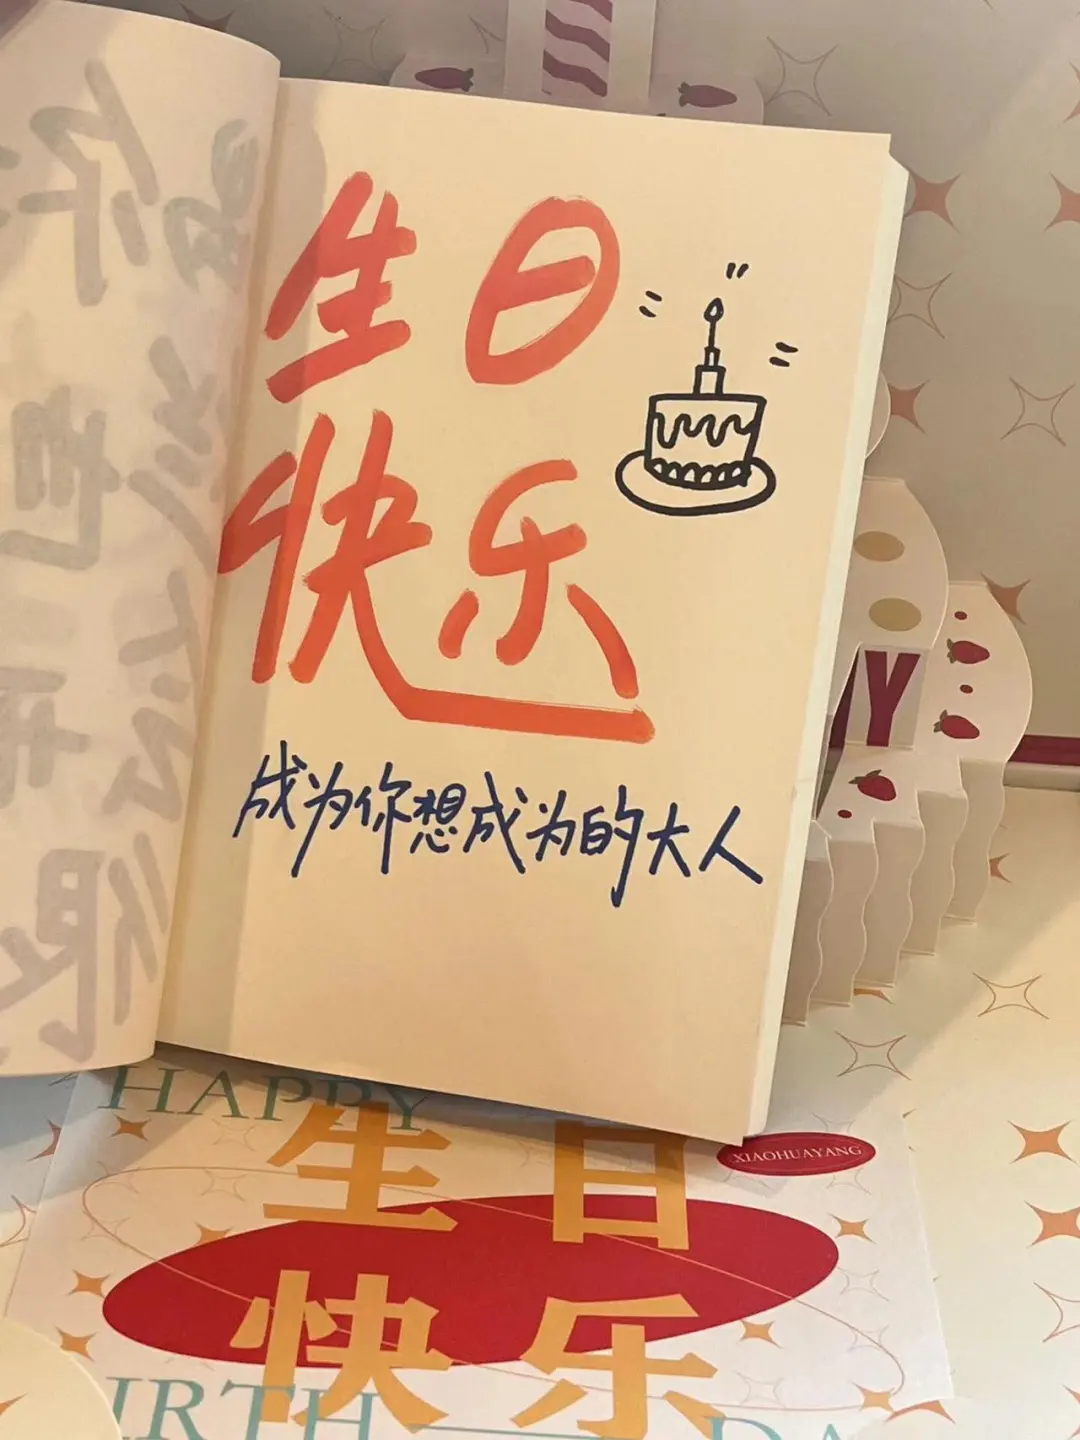 生日
快乐
成为你想成为的大人
Y
HAPPY
生日
XIAOHUAYANG
快乐
IRTH
DA